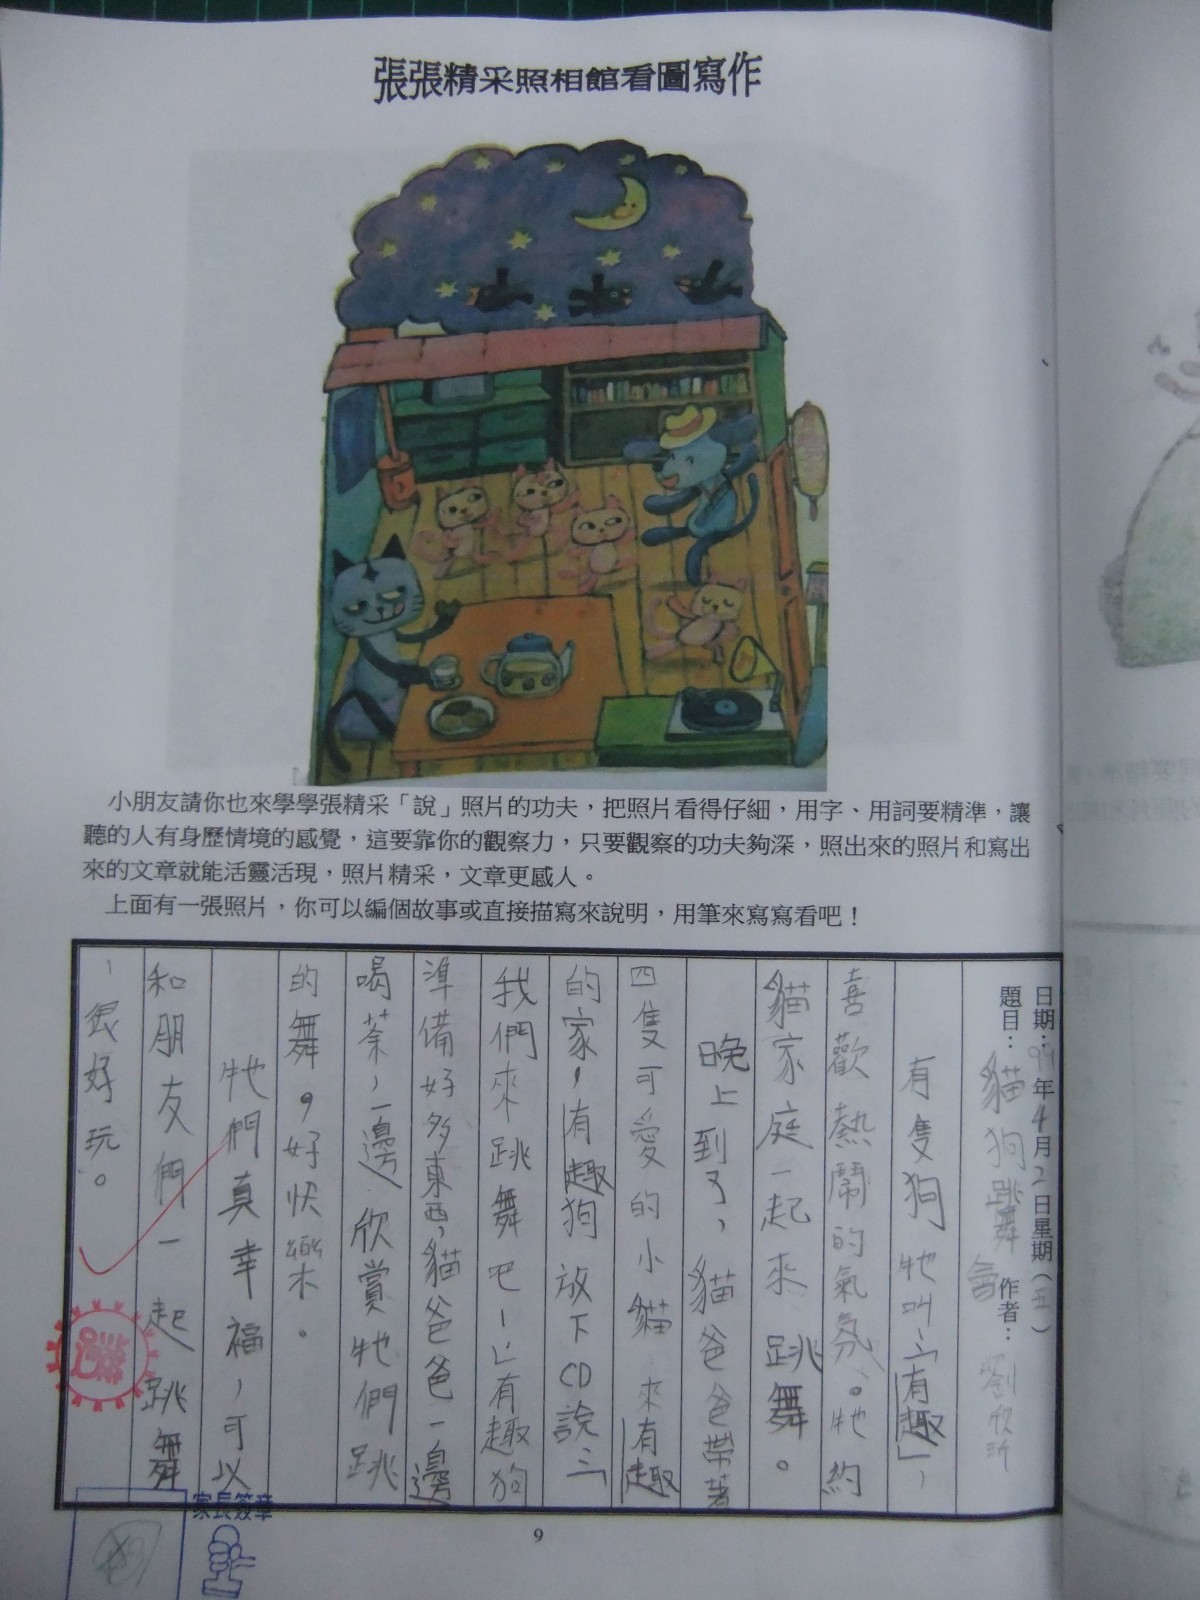 張張精采照相館看圖寫作
小朋友請你也來學學張精采「說」照片的功夫，把照片看得仔細，用字、用詞要精準，讓
聽的人有身歷情境的感覺，這要靠你的觀察力，只要觀察的功夫夠深，照出來的照片和寫出
來的文章就能活靈活現，照片精采，文章更感人。
上面有一張照片，你可以編個故事或直接描寫來說明，用筆來寫寫看吧！
日期：99年4月2日星期（五）
題目：貓狗跳舞會 作者：劉欣
有隻狗牠叫：「有趣」，
喜歡熱鬧的氣氛。牠約
貓家庭一起來跳舞。
晚上到了，貓爸爸帶著
四隻可愛的小貓來有趣
的家，有趣狗放下CD說：「
我們來跳舞吧！」有趣狗
準備好多東西，貓爸爸一邊
喝茶，一邊欣賞牠們跳
的舞，好快樂。
牠們真幸福，可以
和朋友們一起跳舞
，很好玩。
家長簽章
9